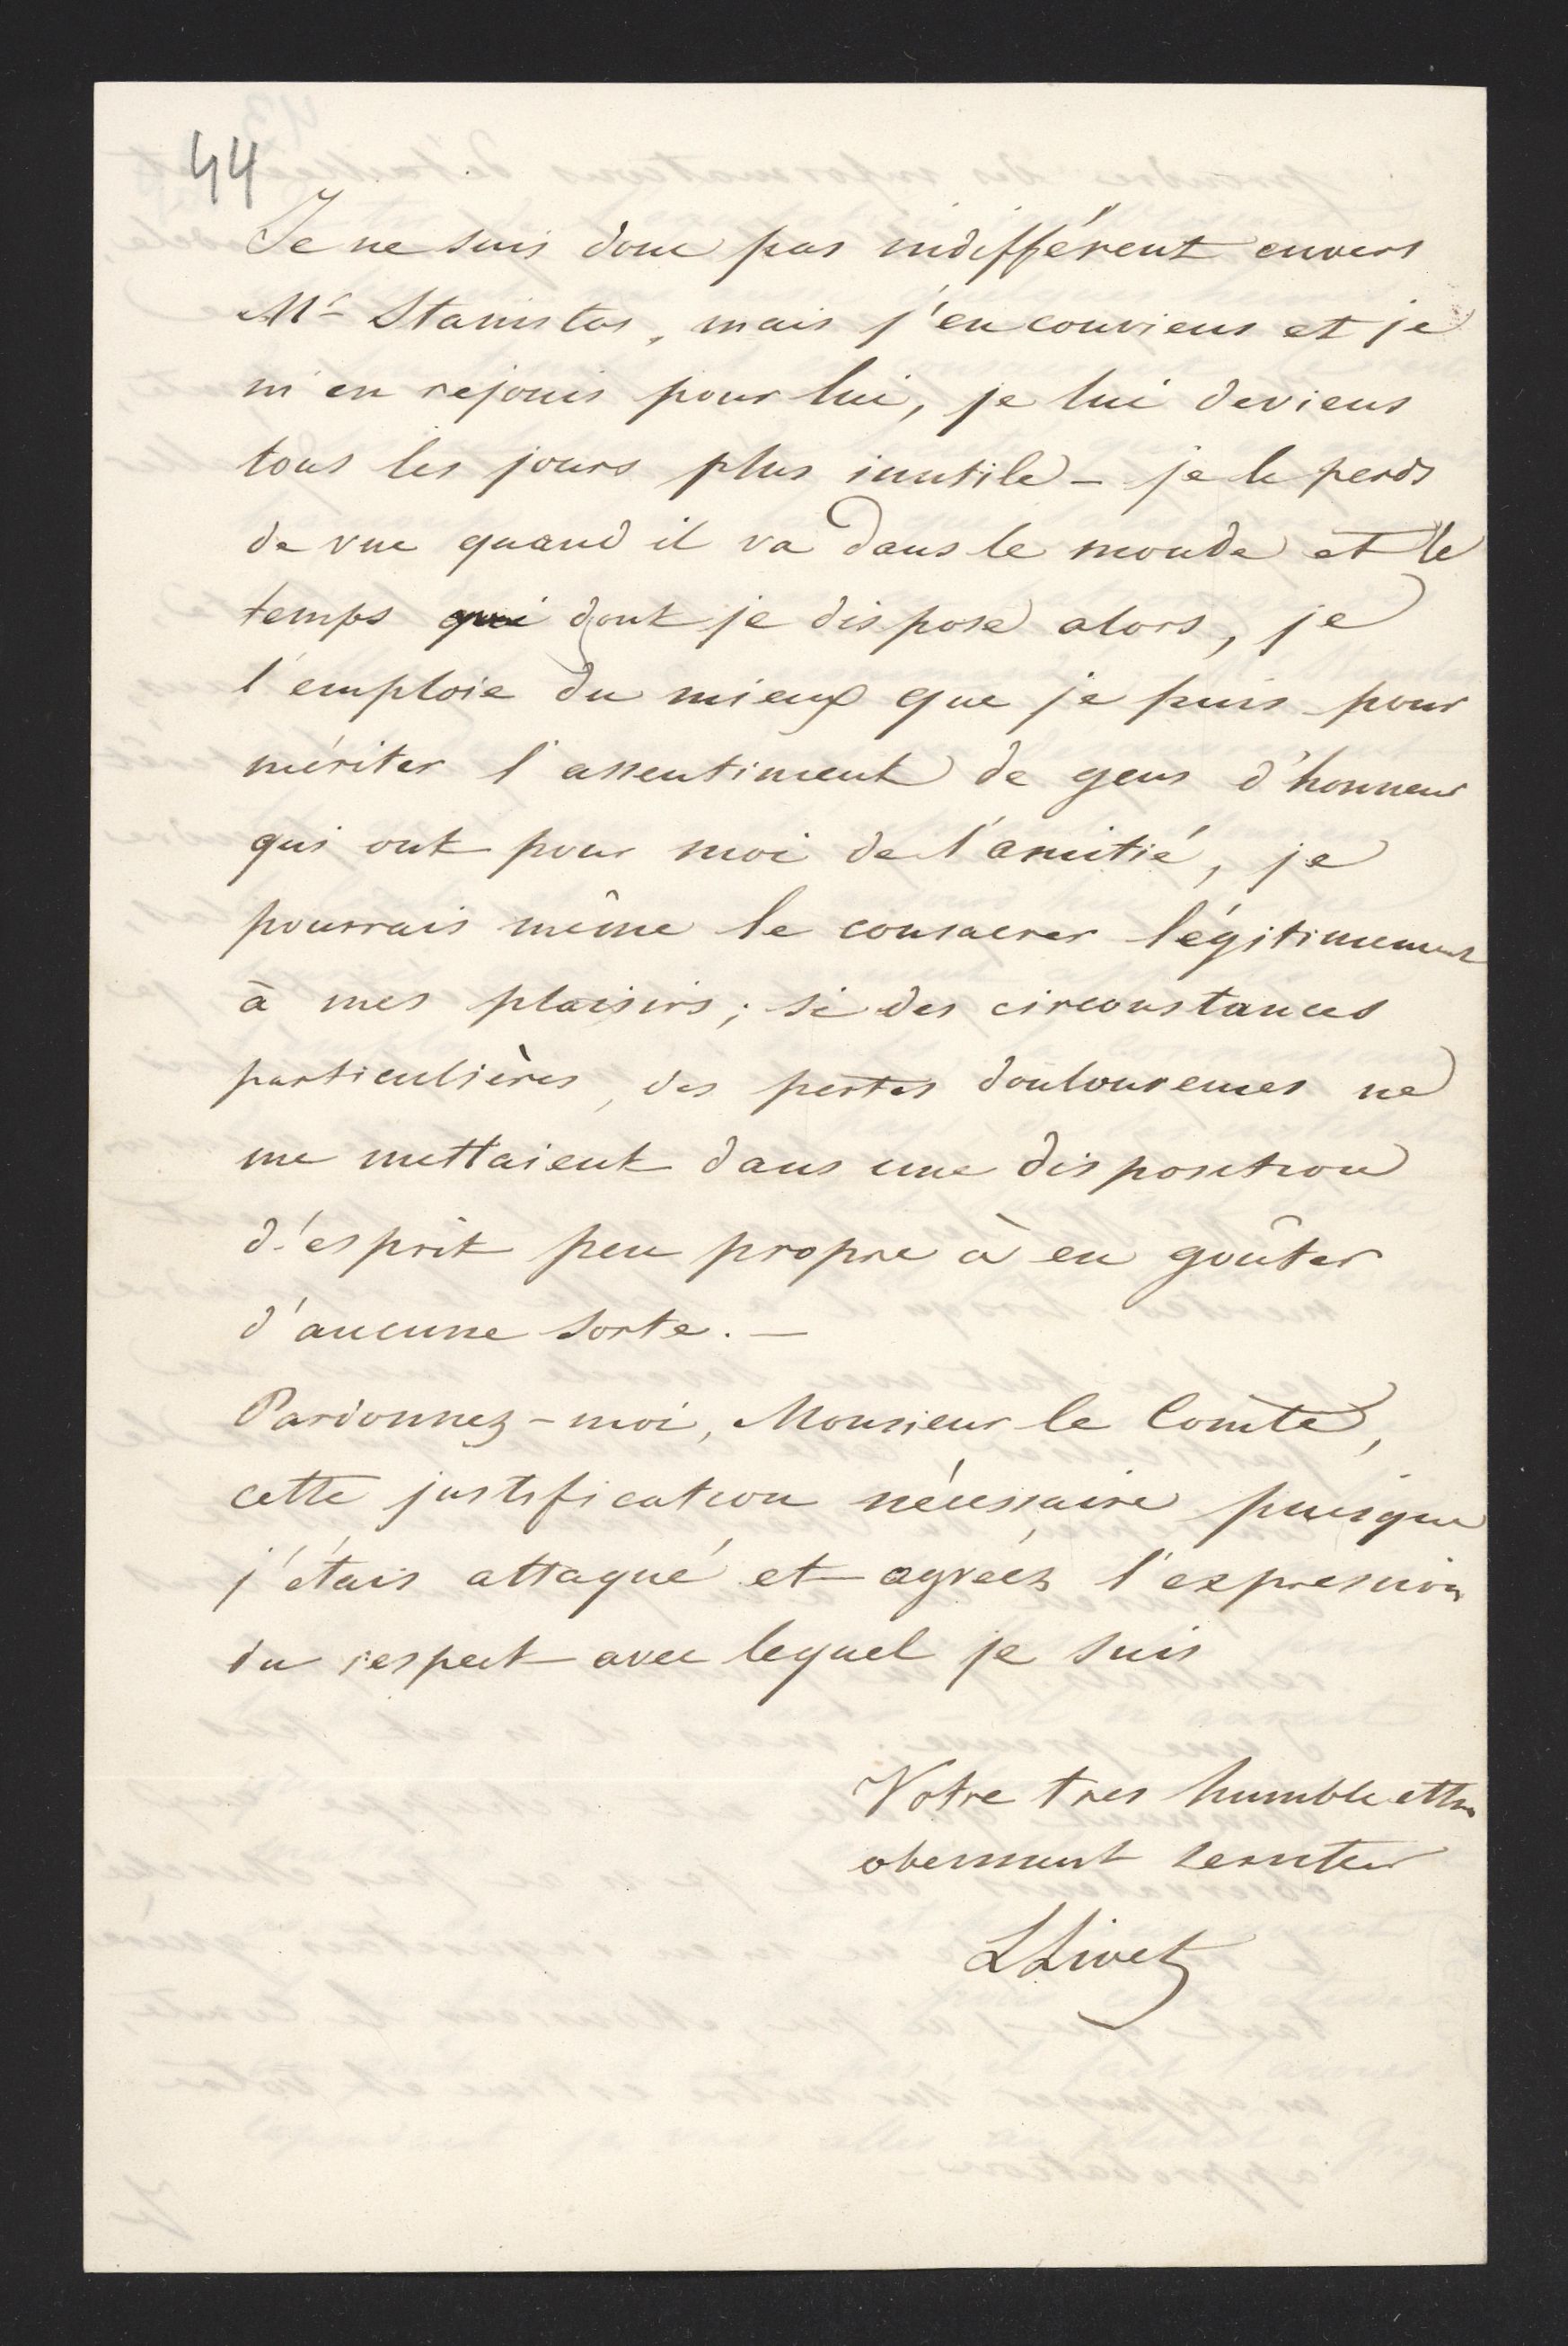 44
Je ne suis donc pas indifférent envers
Mr Stanislas, mais j'en conviens et je
m'en rejouis pour lui, je lui deviens
tous les jours plus inutile - je le perds
de vue quand il va dans le monde et le
temps qui dont je dispose alors, je
l'emploie du mieux que je puis pour
mériter l'assentiment de gens d'honneur
qui ont pour moi de l'amitié, je
pourrais même le consacrer légitimement
à mes plaisirs; si des circonstances
particulières, des pertes douloureuses ne
me mettaient dans une disposition
d'esprit peu propre à en goûter
d'aucune sorte. -
Pardonnez-moi, Monsieur le Comte,
cette justification nécessaire puisque
j'étais attaqué et agréez l'expression
du respect avec lequel je suis
Votre tres humble et tres
obeissant serviteur
LLivet